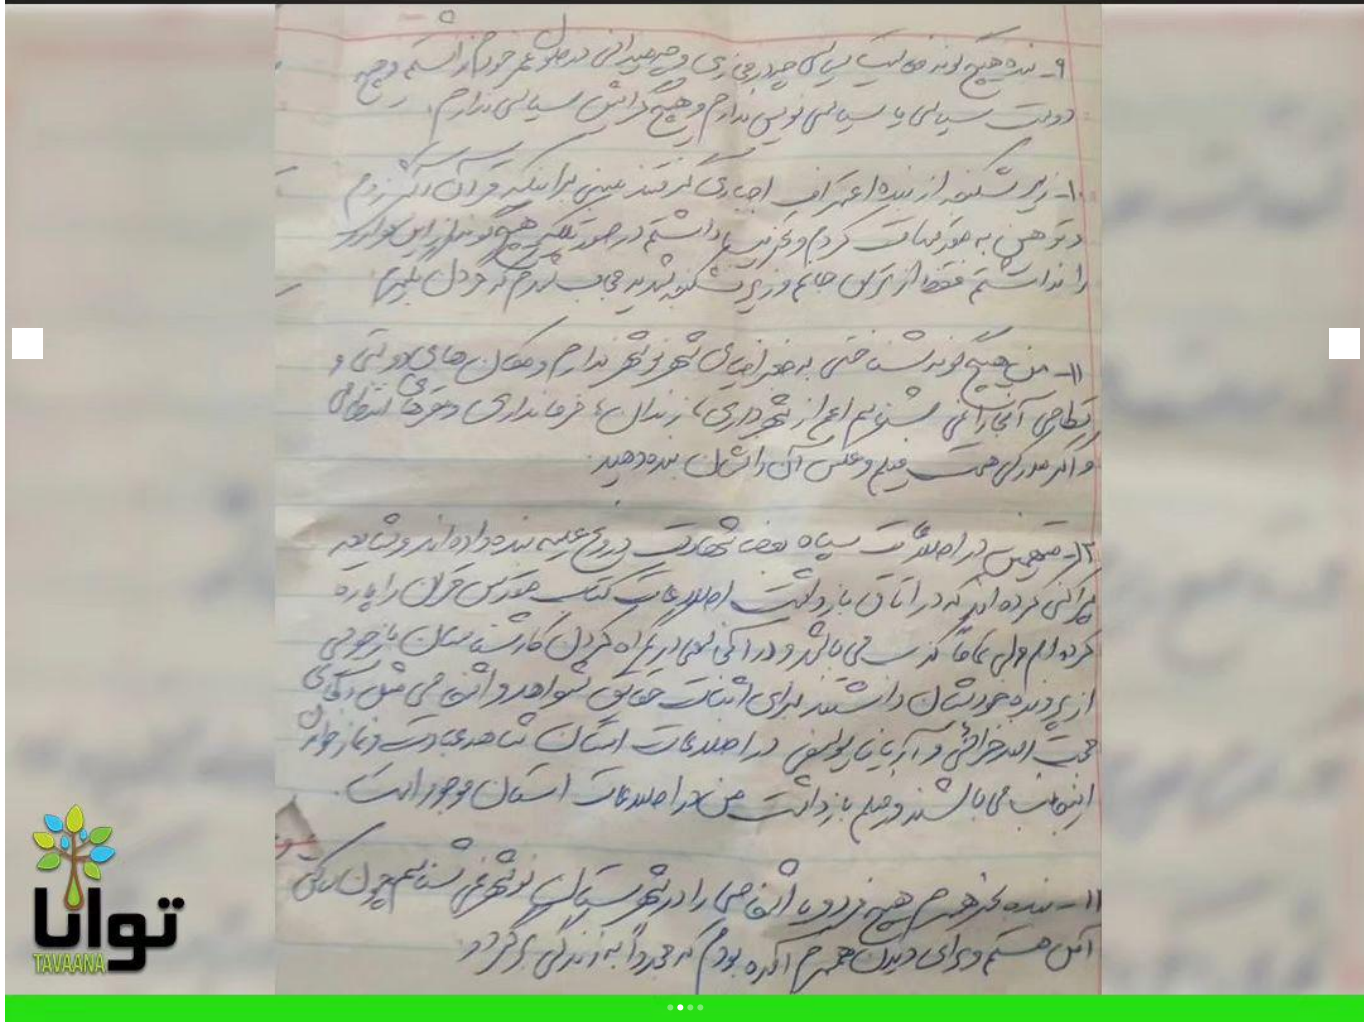 ۹- بنده هیچ گونه فعالیت سیاسی چه در مجازی و چه میدانی در طول عمر خودم نداشتم و هیچ
دوست سیاسی یا سیاسی نویس ندارم و هیچ گرایش سیاسی ندارم.
۱۰- زیر شکنجه از بنده اعتراف اجباری گرفتند مبنی بر اینکه قرآن آتش زدم
و توهین به مقدسات کردم و تخریب داشتم در صورتیکه هیچ گونه از این موارد
را نداشتم فقط از ترس جانم و زیر شکنجه شدید مجاب شدم که دروغ بگویم
۱۱- من هیچ گونه شناختی به جغرافیای شهر نوشهر ندارم و مکان های دولتی و
نظامی آنجا را نمی شناسم اعم از شهرداری، زندان، فرمانداری و مقرهای انتظامی
و اگر مدرکی هست فیلم و عکس آن را نشان بنده دهید.
۱۲- متهمین در اطلاعات سپاه بعضا شهادت دروغ علیه بنده داده اند و شایعه
پراکنی کرده اند که در اتاق بازداشت اطلاعات کتاب مقدس قرآن را پاره
کرده ام ولی تماماً کذب می باشد و در گمراه کردن کارشناسان بازجویی
از پرونده خودشان داشتند برای اثبات حقایق شواهد و اشخاصی مثل آقای
حجت اله و آریا یوسفی در اطلاعات استان شاهد عبادت و نماز خواندن
اینجانب می باشند و فیلم بازداشت من در اطلاعات استان موجود است.
۱۱- بنده بجز همسرم هیچ فرد و یا اشخاصی را در شهرستان نوشهر نمی شناسم چون ساکن
آمل هستم و برای دیدن همسرم آمده بودم که مجدداً به زندگی برگردد
توانا
TAVAANA